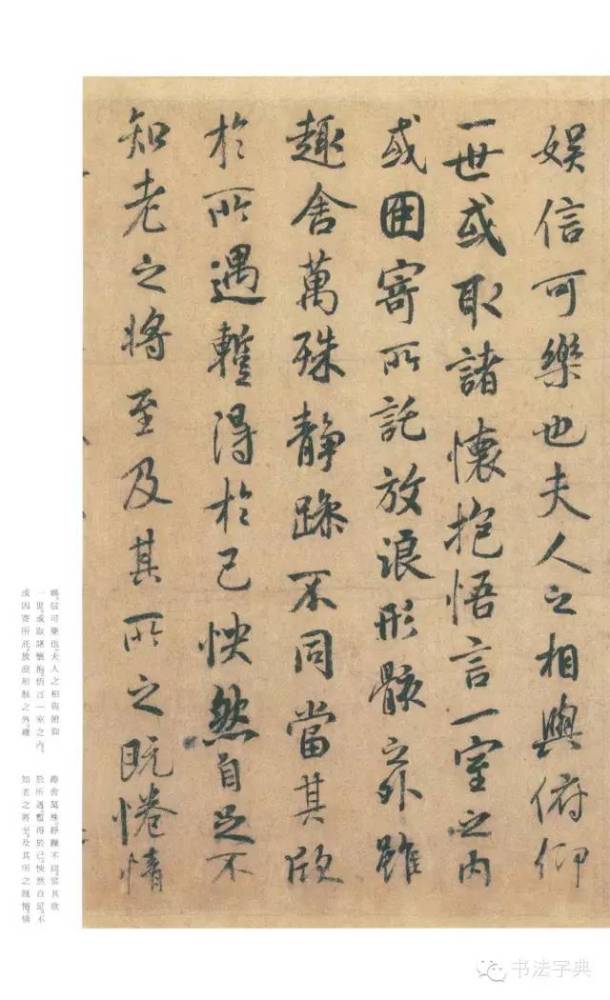 娛信可樂也夫人之相與俯仰
一世或取諸懷抱悟言一室之內
或因寄所託放浪形骸之外雖
趣舍萬殊静躁不同當其欣
於所遇暫得於己怏然自足不
知老之將至及其所之既惓情
娛，信可樂也。夫人之相與俯仰
一世，或取諸懷抱，悟言一室之內，
或因寄所託，放浪形骸之外。雖
趣舍萬殊，靜躁不同，當其欣
於所遇，暫得於己，怏然自足，不
知老之將至。及其所之既惓，情
书法字典